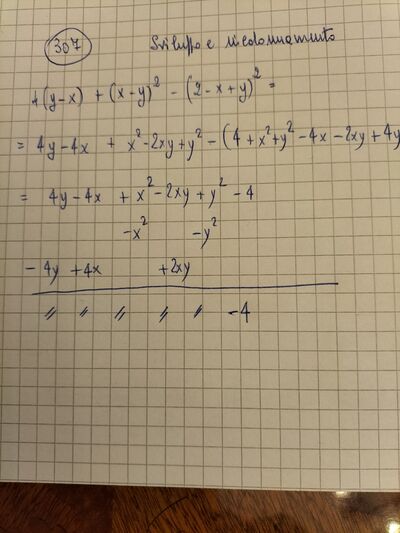 307 Sviluppo e incolonnamento
4(y-x) + (x-y)² - (2-x+y)² =
= 4y-4x + x²-2xy+y² - (4+x²+y²-4x-2xy+4y
= 4y-4x + x²-2xy+y² -4
-x² -y²
-4y +4x +2xy
// // // // // -4